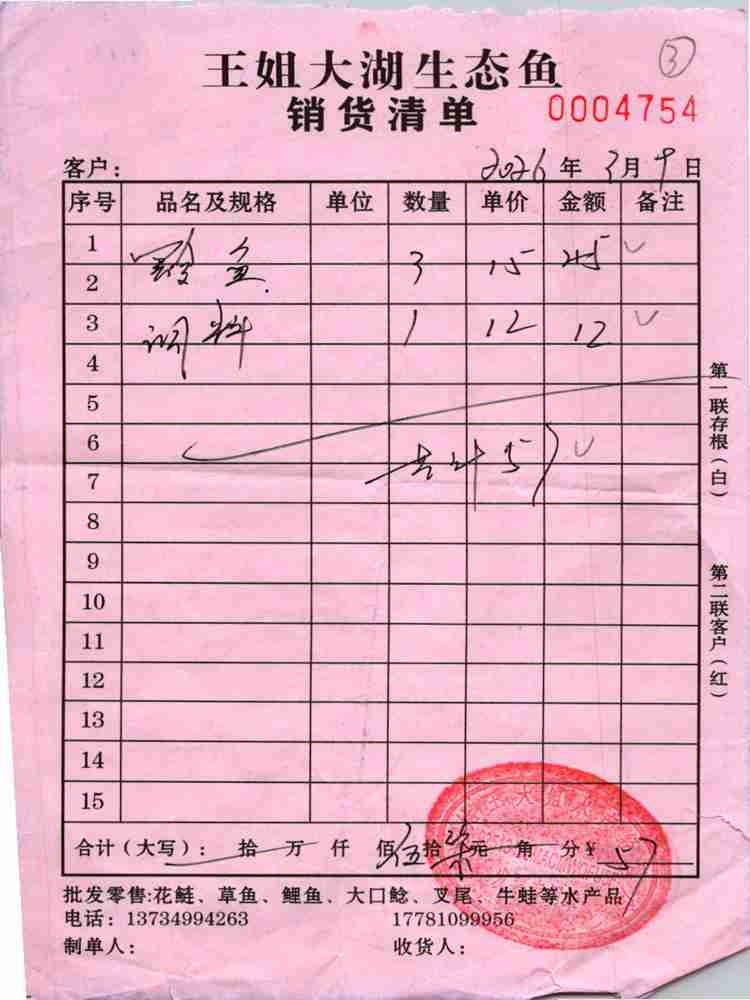 ③
王姐大湖生态鱼
销货清单 0004754
客户： 2026年3月9日
序号 品名及规格 单位 数量 单价 金额 备注
1
鱼 3 15 45
2
3 调料 1 12 12
4
5
6
共计 57
7
8
9
10
11
12
13
14
15
合计（大写）： 拾 万 仟 佰 伍 拾 柒 元 角 分 ¥ 57
批发零售:花鲢、草鱼、鲤鱼、大口鲶、叉尾、牛蛙等水产品
电话：13734994263 17781099956
制单人： 收货人：
第一联存根（白）
第二联客户（红）